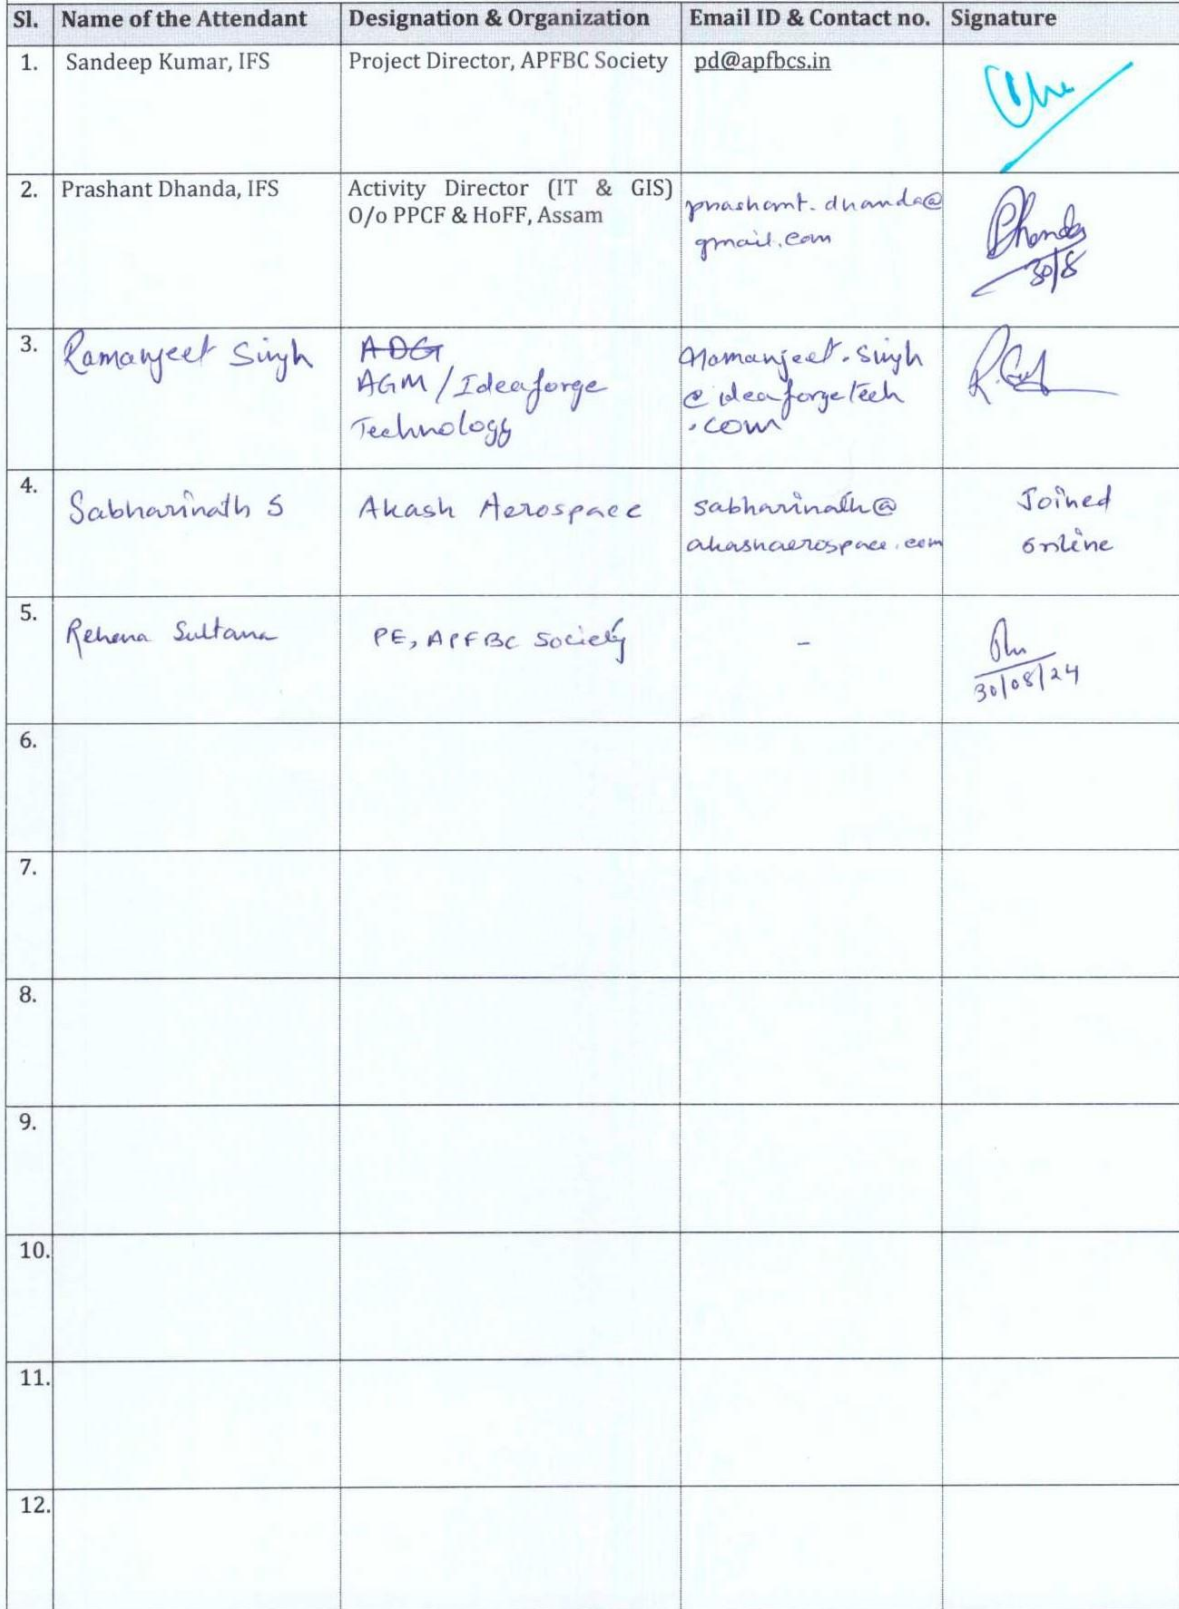 Sl. Name of the Attendant Designation & Organization Email ID & Contact no. Signature
1. Sandeep Kumar, IFS Project Director, APFBC Society pd@apfbcs.in
2. Prashant Dhanda, IFS Activity Director (IT & GIS)
O/o PPCF & HoFF, Assam
prashant.dhanda@
gmail.com
Dhanda
30/8
3. Ramanjeet Singh
ADG
AGM/Ideaforge
Technology
ramanjeet.singh
@ideaforgetech
.com
4. Sabharinath S Akash Aerospace
sabharinath@
akashaerospace.com
Joined
online
5. Rehena Sultana PE, APFBC Society -
30/08/24
6.
7.
8.
9.
10.
11.
12.